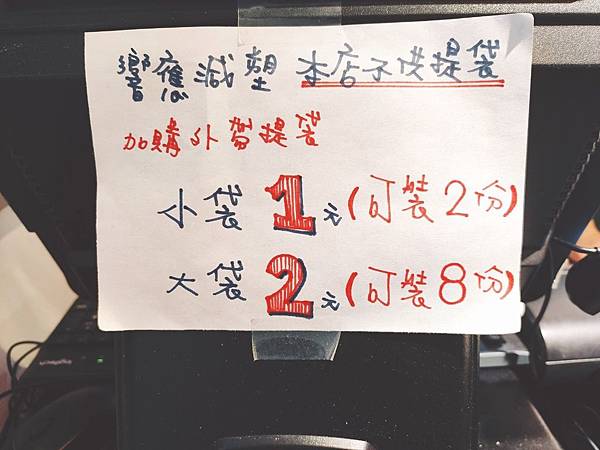 響應減塑 本店不供提袋
加購外帶提袋
小袋 1元(可裝2份)
大袋 2元(可裝8份)